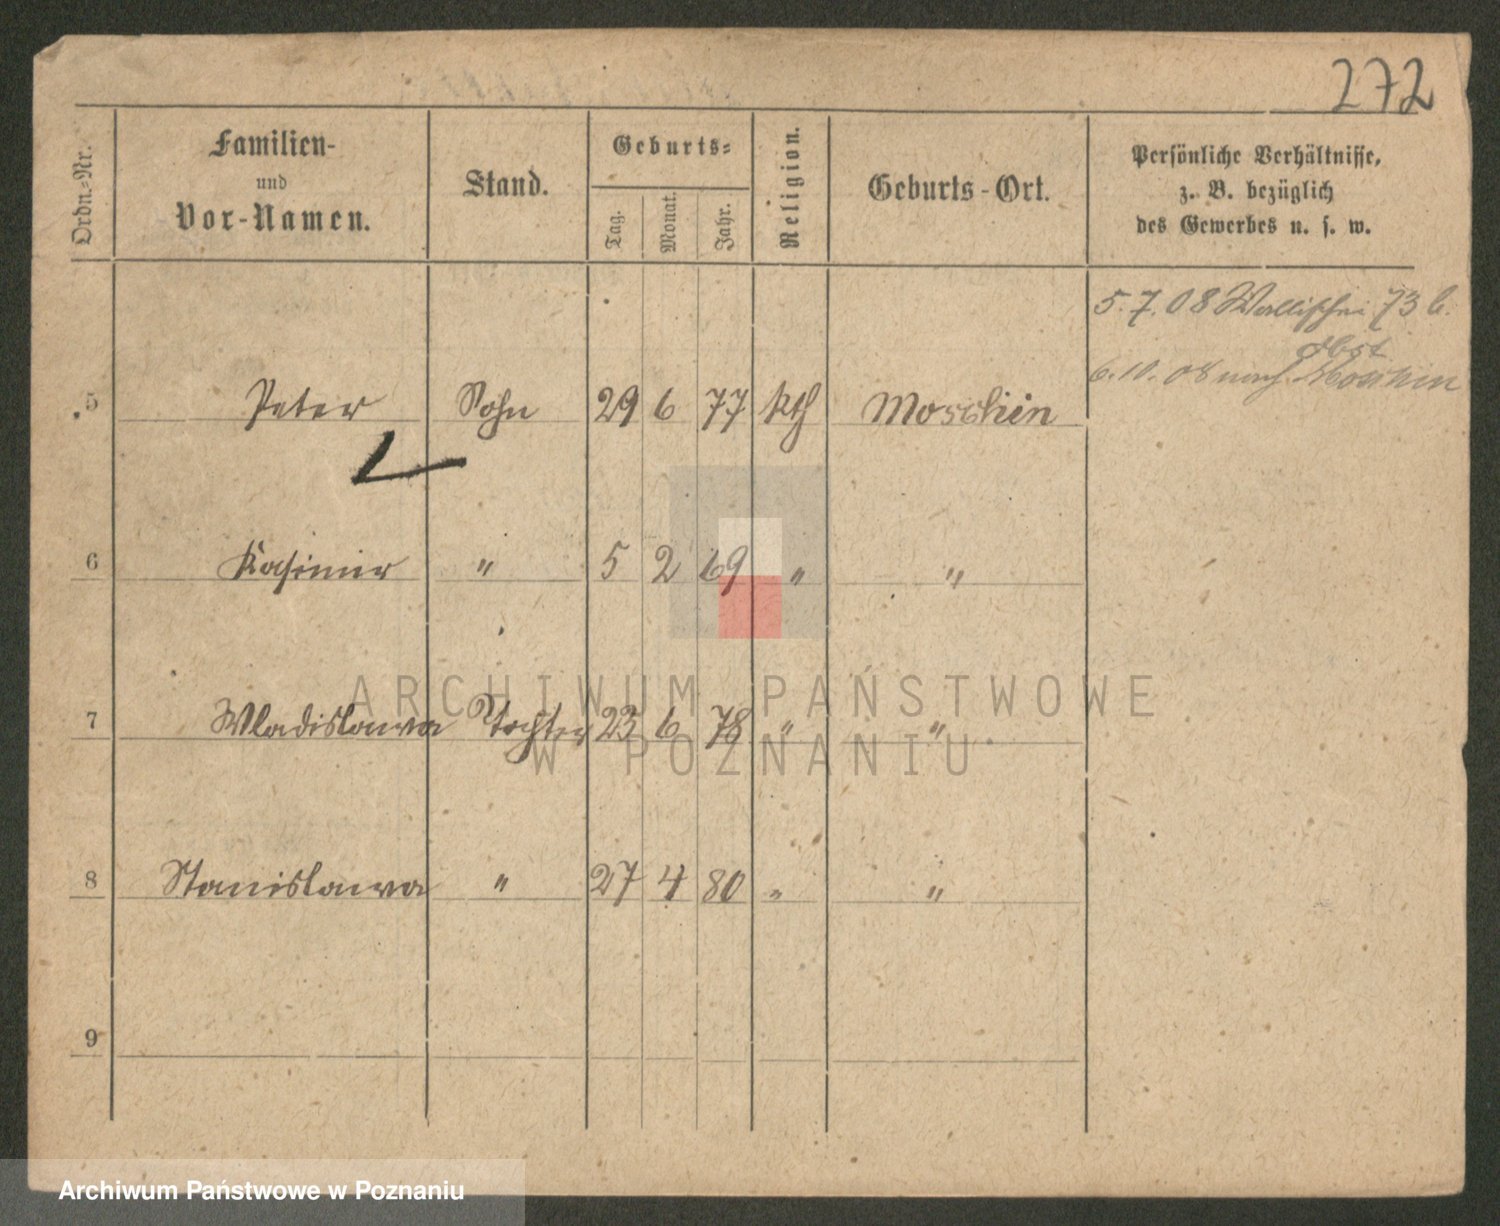 272
Ordn.-Nr.
Familien-
und
Vor-Namen.
Stand.
Geburts-
Tag.
Monat.
Jahr.
Religion.
Geburts-Ort.
Persönliche Verhältnisse,
z. B. bezüglich
des Gewerbes u. s. w.
5.7.08 Wallischei 73 b.
6.10.08 nach Moschin
5 Peter Sohn 29 6 77 kth Moschin
6 Kasimir " 5 2 69 " "
7 Wladislawa Tochter 23 6 78 " "
8 Stanislawa " 27 4 80 " "
9
ARCHIWUM PAŃSTWOWE
W POZNANIU
Archiwum Państwowe w Poznaniu